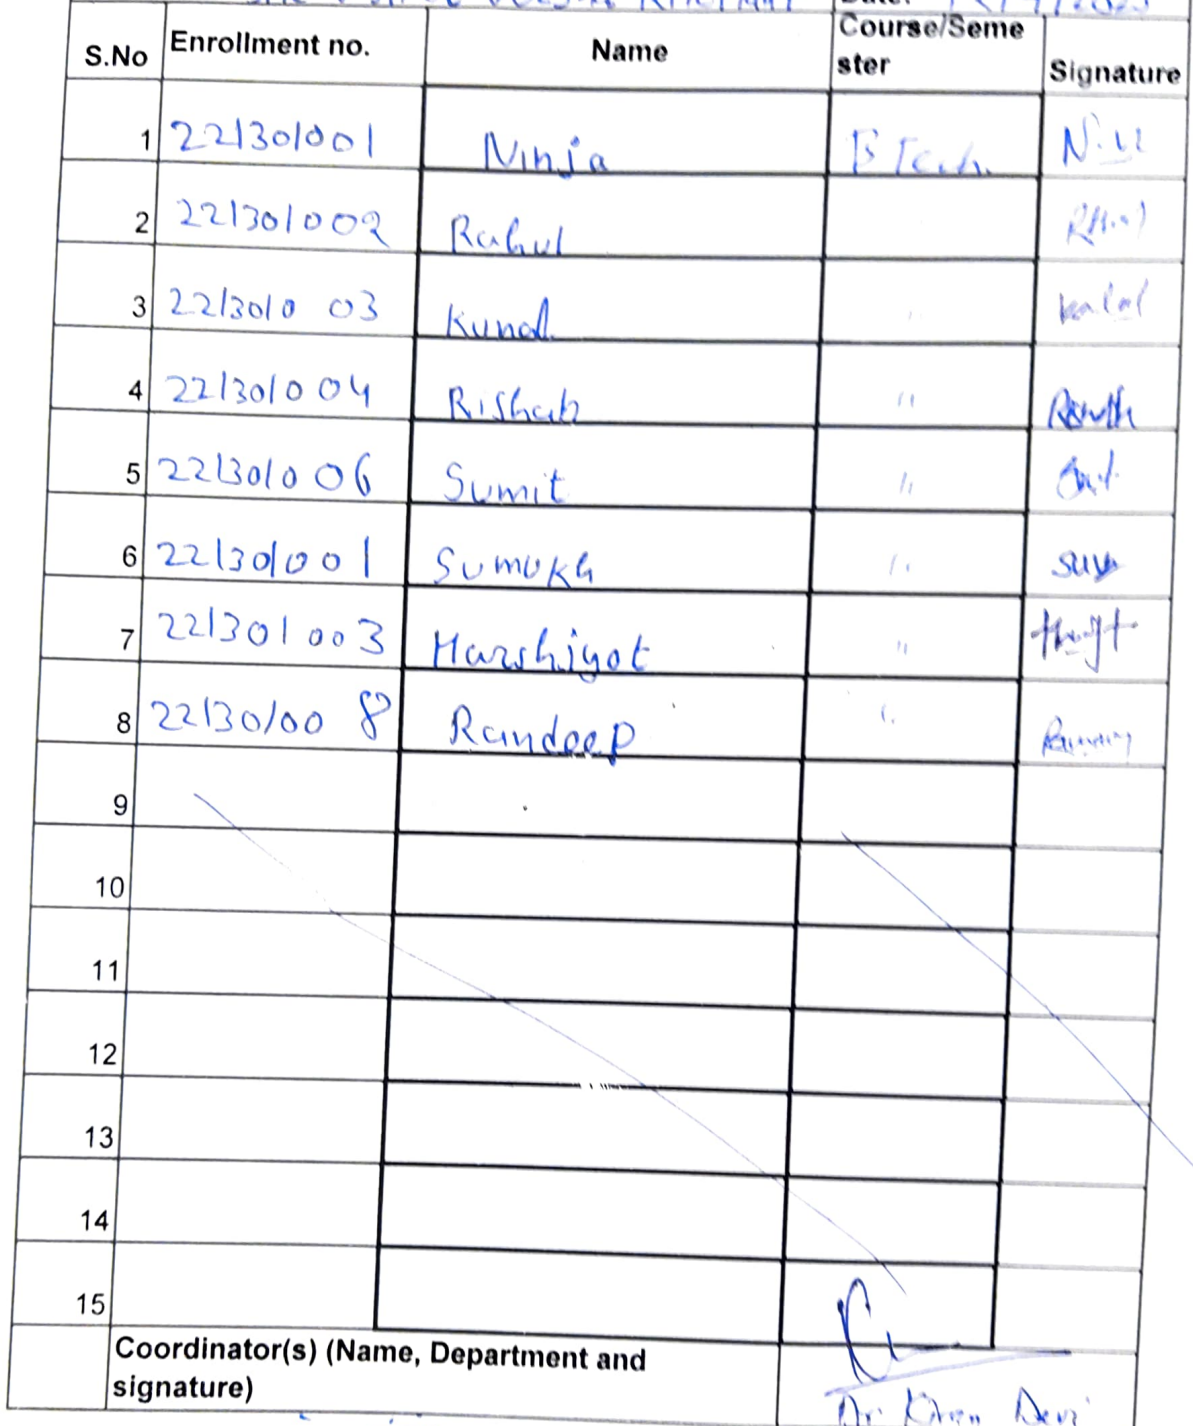 Course/Seme
S.No Enrollment no. Name ster Signature
1 221301001 Ninja B Tech.
2 221301002 Rahul
3 2213010 03 Kunal "
4 2213010 04 Rishab "
5 2213010 06 Sumit "
6 221301001 Sumukh "
7 221301003 Harshiyot "
8 22130100 8 Randeep "
9
10
11
12
13
14
15
Coordinator(s) (Name, Department and
signature)
Dr. Devi